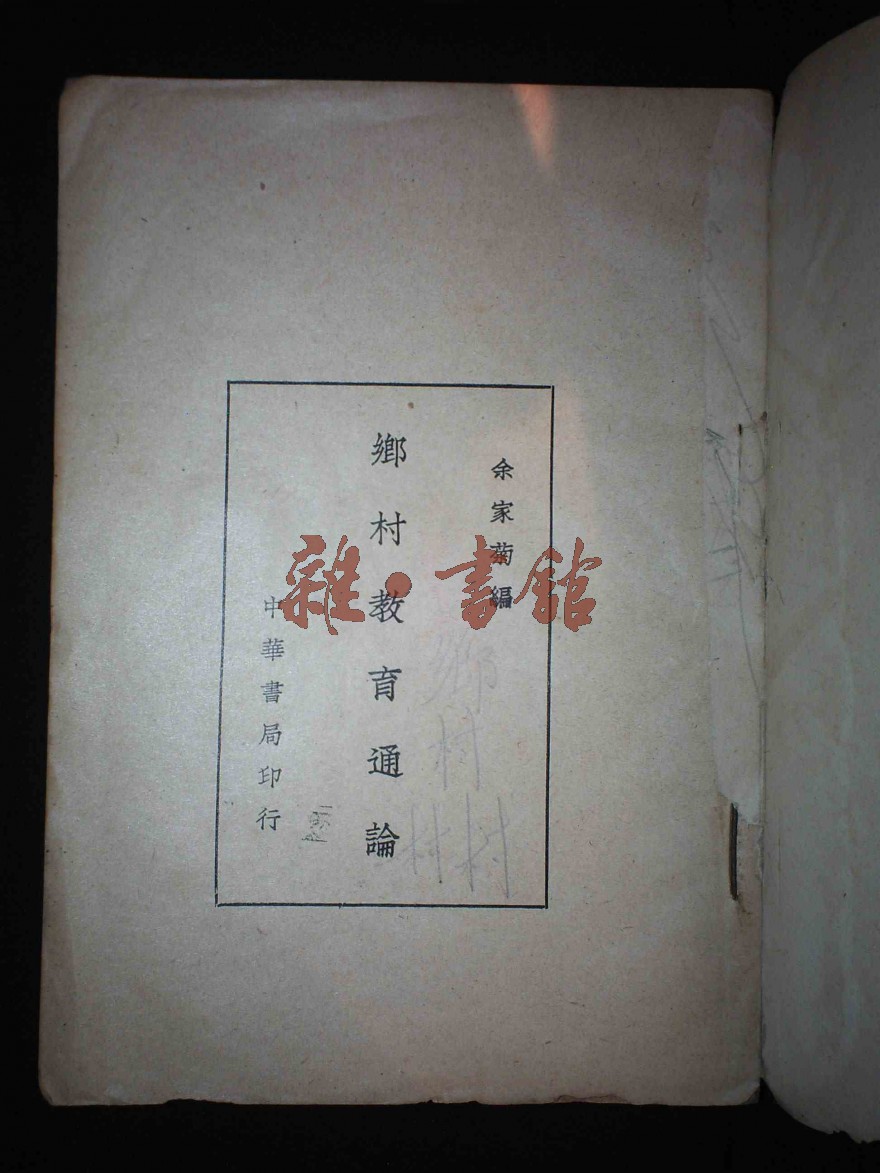 余家菊編
鄉村教育通論
中華書局印行
雜·書館
鄉村
村村